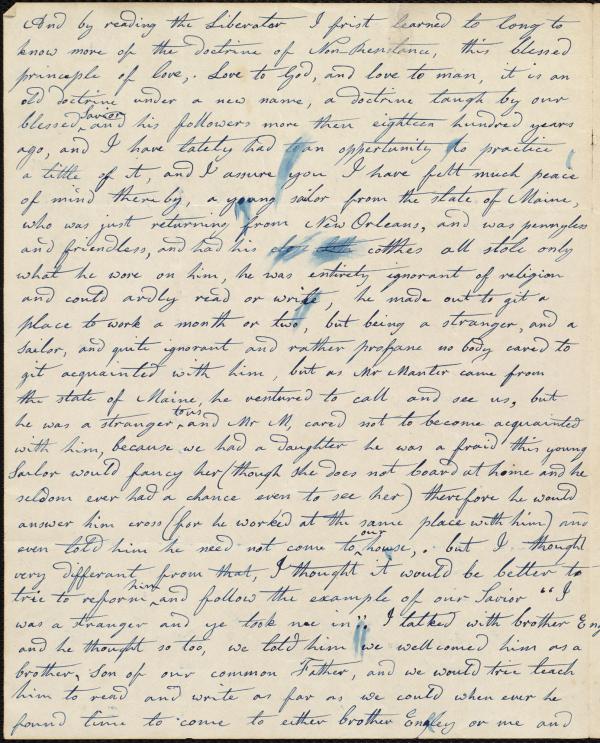 And by reading the Liberator I frist learned to long to
know more of the doctrine of Non-Resistance, this blessed
principle of love,. Love to God, and love to man, it is an
old doctrine under a new name, a doctrine taugh by our
blessed Savior and his followers more then eighteen hundred years
ago, and I have lately had an opportunity to practice
a little of it, and I assure you I have felt much peace
of mind thereby, a young sailor from the state of Maine,
who was just returning from New Orleans, and was pennyless
and friendless, and had his cotthes all stole only
what he wore on him, he was entirely ignorant of religion
and could ardly read or write, he made out to git a
place to work a month or two, but being a stranger, and a
sailor, and quite ignorant and rather profane no body cared to
git acquainted with him, but as Mr Manter came from
the state of Maine, he ventured to call and see us, but
he was a stranger to us and Mr M, cared not to become acquainted
with him, because we had a daughter he was a fraid this young
Sailor would fancy her (though she does not board at home and he
seldom ever had a chance even to see her) therefore he would
answer him cross (for he worked at the same place with him) and
even told him he need not come to our house,. but I thought
very differant from that, I thought it would be better to
trie to reform him and follow the example of our Savior "I
was a stranger and ye took me in". I talked with brother Eng
and he thought so too, we told him we wellcomed him as a
brother, Son of our common Father, and we would trie teach
him to read and write as far as we could when ever he
found time to come to either brother Engley or me and